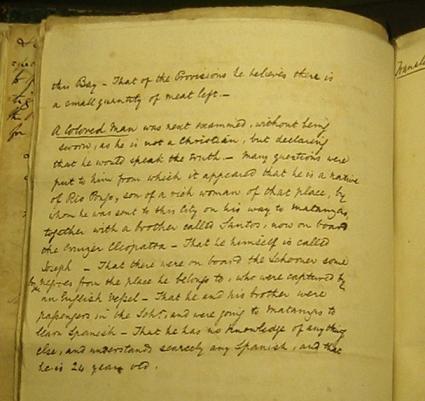 this Bay – That of the Provisions he believes there is
a small quantity of meat left. –
A Colored Man was next examined, without being
sworn, as he is not a Christian, but declaring
that he would speak the truth. – Many questions were
put to him from which it appeared that he is a native
of Rio Pongo, son of a rich woman of that place, by
whom he was sent to this City on his way to Matanzas,
together with a brother called Santos, now on board
the Cruizer Cleopatra – That he himself is called
Joseph – That there were on board the Schooner some
negroes from the place he belongs to, who were captured by
an English Vessel – That he and his brother were
passengers in the Schr. and were going to Matanzas to
learn Spanish – That he has no knowledge of anything
else, and understands scarcely any Spanish, and that
he is 24 years old.